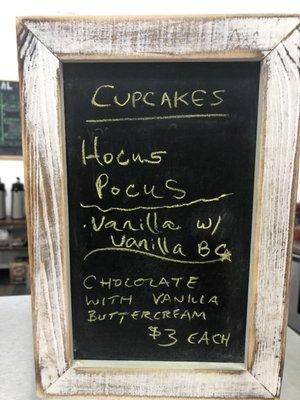 CUPCAKES
HOCUS
POCUS
. Vanilla w/
Vanilla BC
CHOCOLATE
WITH VANILLA
BUTTERCREAM
$3 EACH